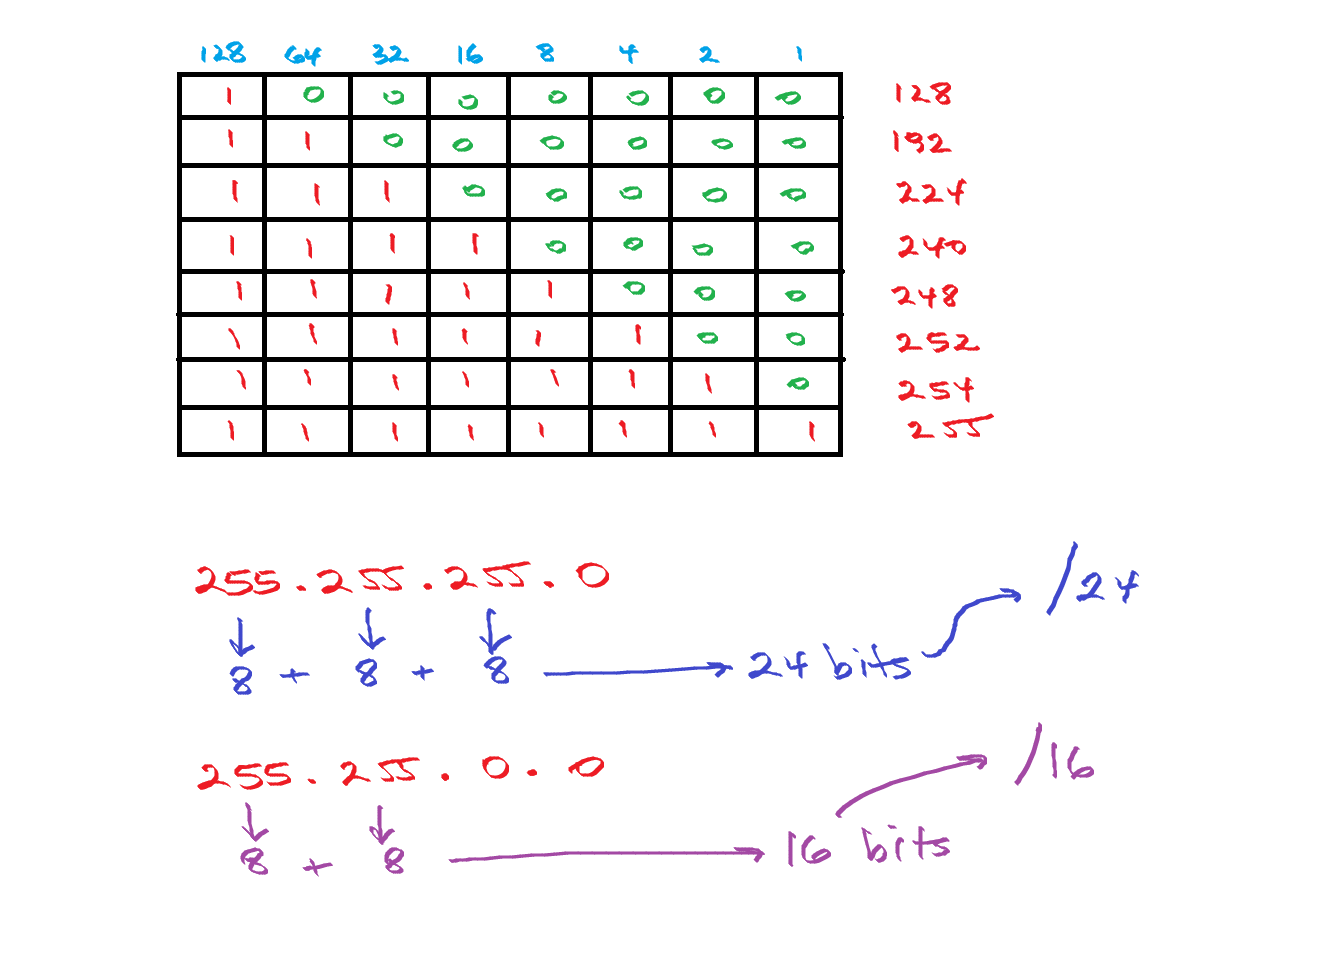 128 64 32 16 8 4 2 1
1 0 0 0 0 0 0 0 128
1 1 0 0 0 0 0 0 192
1 1 1 0 0 0 0 0 224
1 1 1 1 0 0 0 0 240
1 1 1 1 1 0 0 0 248
1 1 1 1 1 1 0 0 252
1 1 1 1 1 1 1 0 254
1 1 1 1 1 1 1 1 255
255.255.255.0
/24
8 + 8 + 8 24 bits
255.255.0.0
/16
8 + 8 16 bits